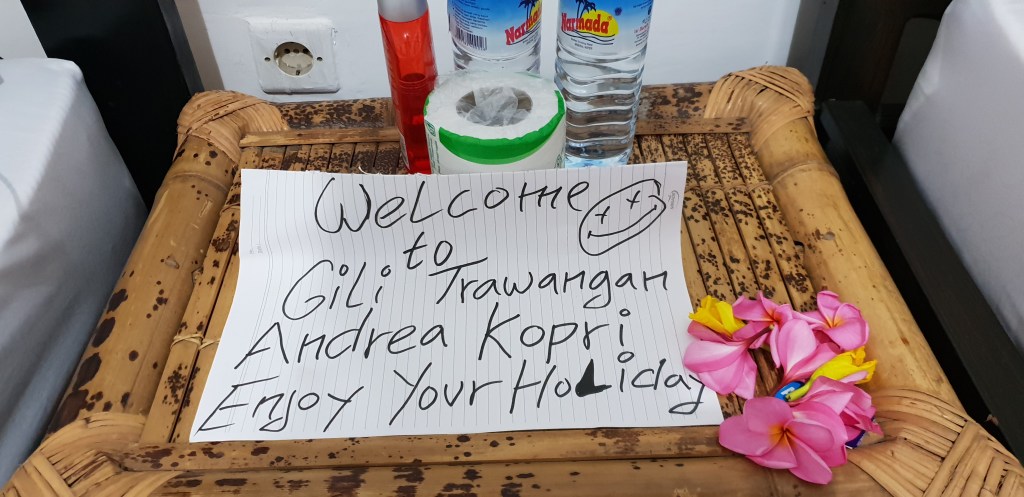 Narmada
Narmada
WeLcome
to
GiLi Trawangan
Andrea Kopri
Enjoy Your HoLiday